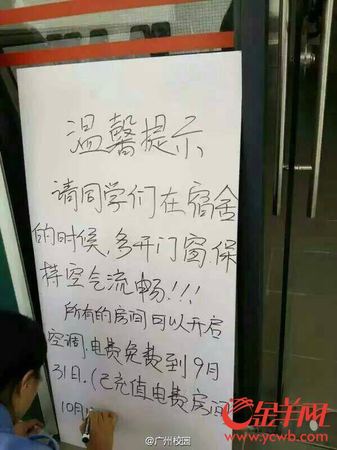 温馨提示
请同学们在宿舍
的时候,多开门窗,保
持空气流畅!!!
所有的房间可以开启
空调,电费免费到9月
31日.(已充值电费房间
10月
金羊网
www.ycwb.com
@广州校园